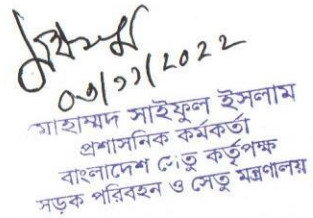 ০৩/১১/2022
মোহাম্মদ সাইফুল ইসলাম
প্রশাসনিক কর্মকর্তা
বাংলাদেশ সেতু কর্তৃপক্ষ
সড়ক পরিবহন ও সেতু মন্ত্রণালয়